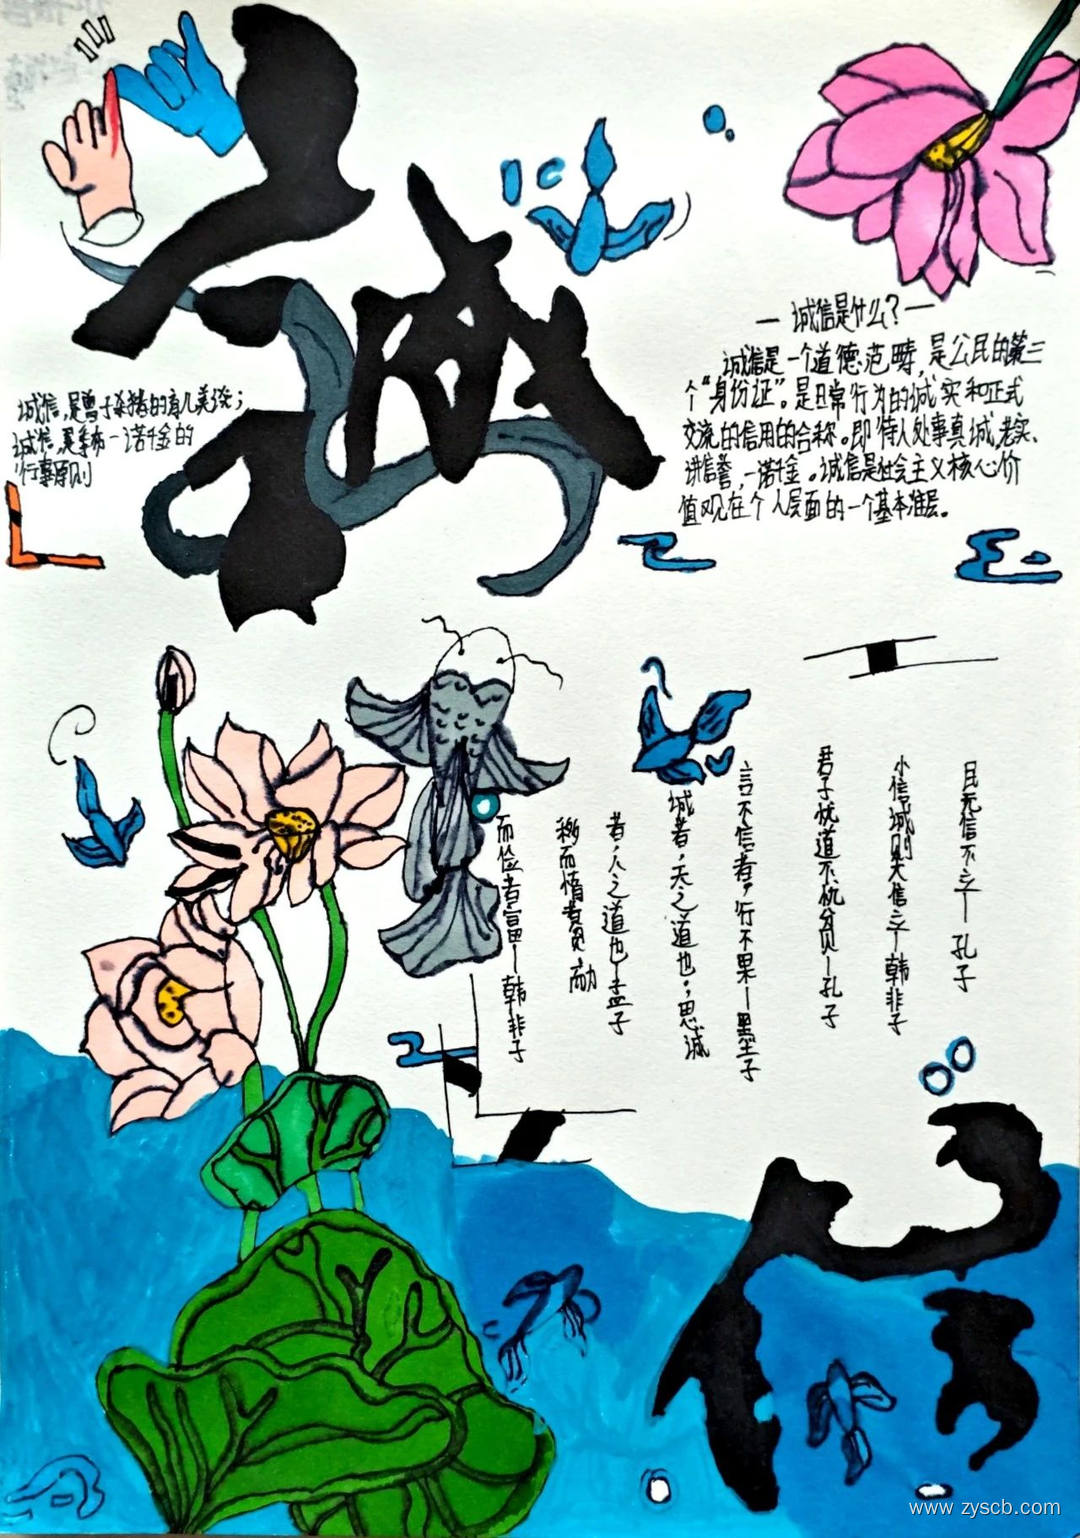 誠
诚信,是曾子杀猪的育儿美谈;
诚信,是季布一诺千金的
行事原则
— 诚信是什么?—
诚信是一个道德范畴,是公民的第三
个“身份证”。是日常行为的诚实和正式
交流的信用的合称。即待人处事真诚、老实、
讲信誉,一诺千金。诚信是社会主义核心价
值观在个人层面的一个基本准层。
民无信不立—孔子
小信诚则大信立—韩非子
君子忧道不忧贫—孔子
言不信者,行不果—墨子
诚者,天之道也;思诚
者,人之道也—孟子
而惰者贫,而力
而俭者富—韩非子
信
www.zyscb.com